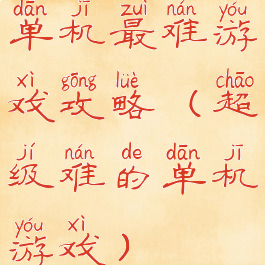 dān jī zuì nán yóu
单机最难游
xì gōng lüè chāo
戏攻略（超
jí nán de dān jī
级难的单机
yóu xì
游戏）